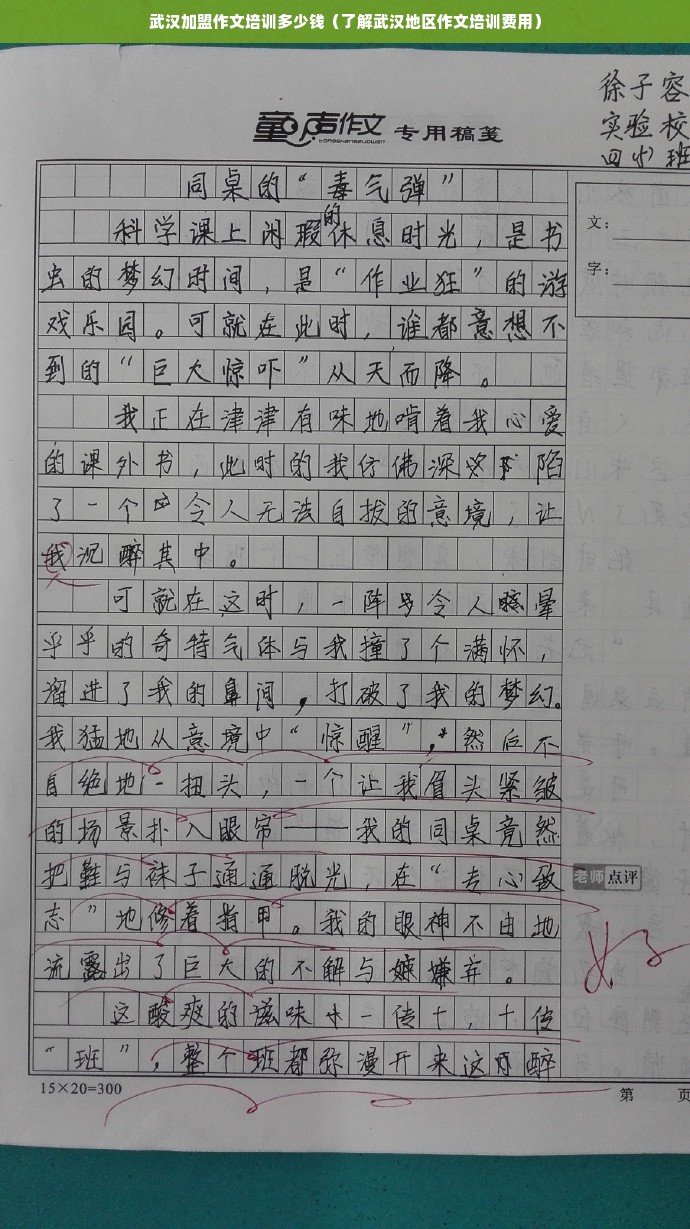 武汉加盟作文培训多少钱（了解武汉地区作文培训费用）
徐子容
实验校
四班
童声作文 专用稿笺
TONGSHENGZUOWEN
同桌的“毒气弹”
科学课上闲瑕的休息时光，是书
虫的梦幻时间，是“作业狂”的游
戏乐园。可就在此时，谁都意想不
到的“巨大惊吓”从天而降。
我正在津津有味地啃着我心爱
的课外书，此时的我仿佛深陷
了一个令人无法自拔的意境，让
我沉醉其中。
可就在这时，一阵令人晕
乎乎的奇特气体与我撞了个满怀，
溜进了我的鼻间，打破了我的梦幻。
我猛地从意境中“惊醒”，然后不
自绝地一扭头，一个让我眉头紧皱
的场景扑入眼帘——我的同桌竟然
把鞋与袜子通通脱光，在“专心致
志”地修着指甲。我的眼神不由地
流露出了巨大的不解与嫌弃。
这酸爽的滋味一传十，十传
“班”，整个班都弥漫开来这醉
文：
字：
老师点评
好
15×20=300
第 页